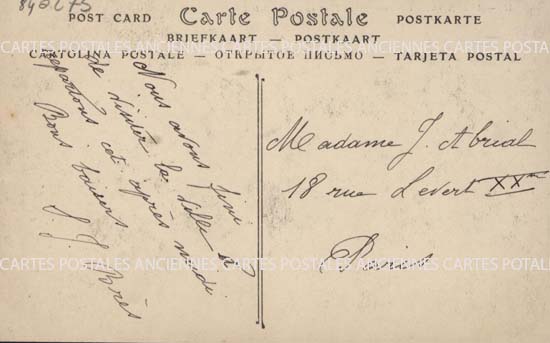 842675
POST CARD Carte Postale POSTKARTE
BRIEFKAART — POSTKAART
CARTOLINA POSTALE — ОТКРЫТОЕ ПИСЬМО — TARJETA POSTAL
Nous avons fini
de visiter la ville et
repartons cet après midi
Bons baisers
J. J. Brès
Madame J. Abrial
18 rue Levert XXme
Paris
CARTES POSTALES ANCIENNES CARTES POSTALES ANCIENNES CARTES POSTALES
CARTES POSTALES ANCIENNES CARTES POSTALES ANCIENNES CARTES POSTALES